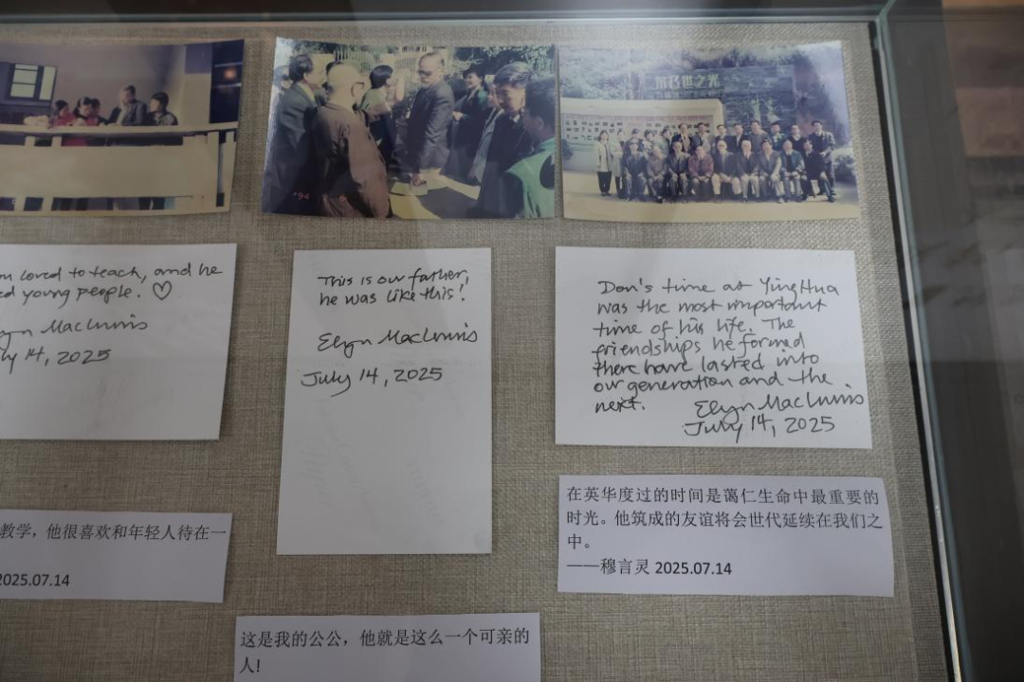 '94
尔乃世之光
loved to teach, and he
young people. ♡
MacInnis
14, 2025
This is our father,
he was like this!
Elyn MacInnis
July 14, 2025
Don's time at YingHua
was the most important
time of his life. The
friendships he formed
there have lasted into
our generation and the
next.
Elyn MacInnis
July 14, 2025
教学，他很喜欢和年轻人待在一
2025.07.14
这是我的公公，他就是这么一个可亲的
人!
在英华度过的时间是蔼仁生命中最重要的
时光。他筑成的友谊将会世代延续在我们之
中。
——穆言灵 2025.07.14